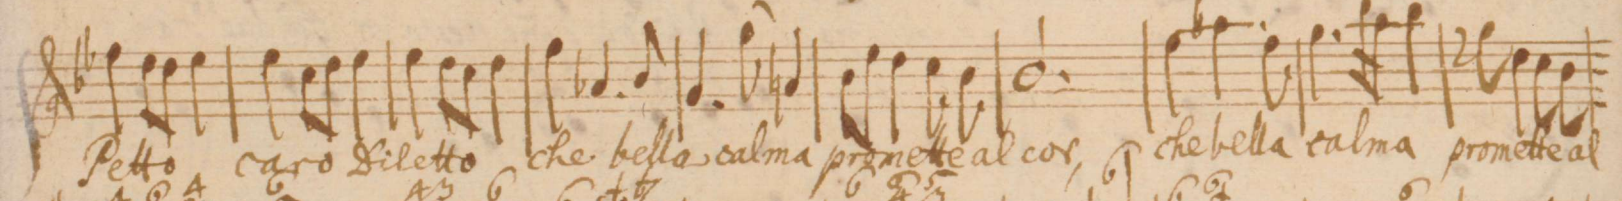 Petto caro Diletto che bella calma promette al cor, che bella calma promette al
4 6 4 6 4 3 6 6 6 4 5 6 6 6 6